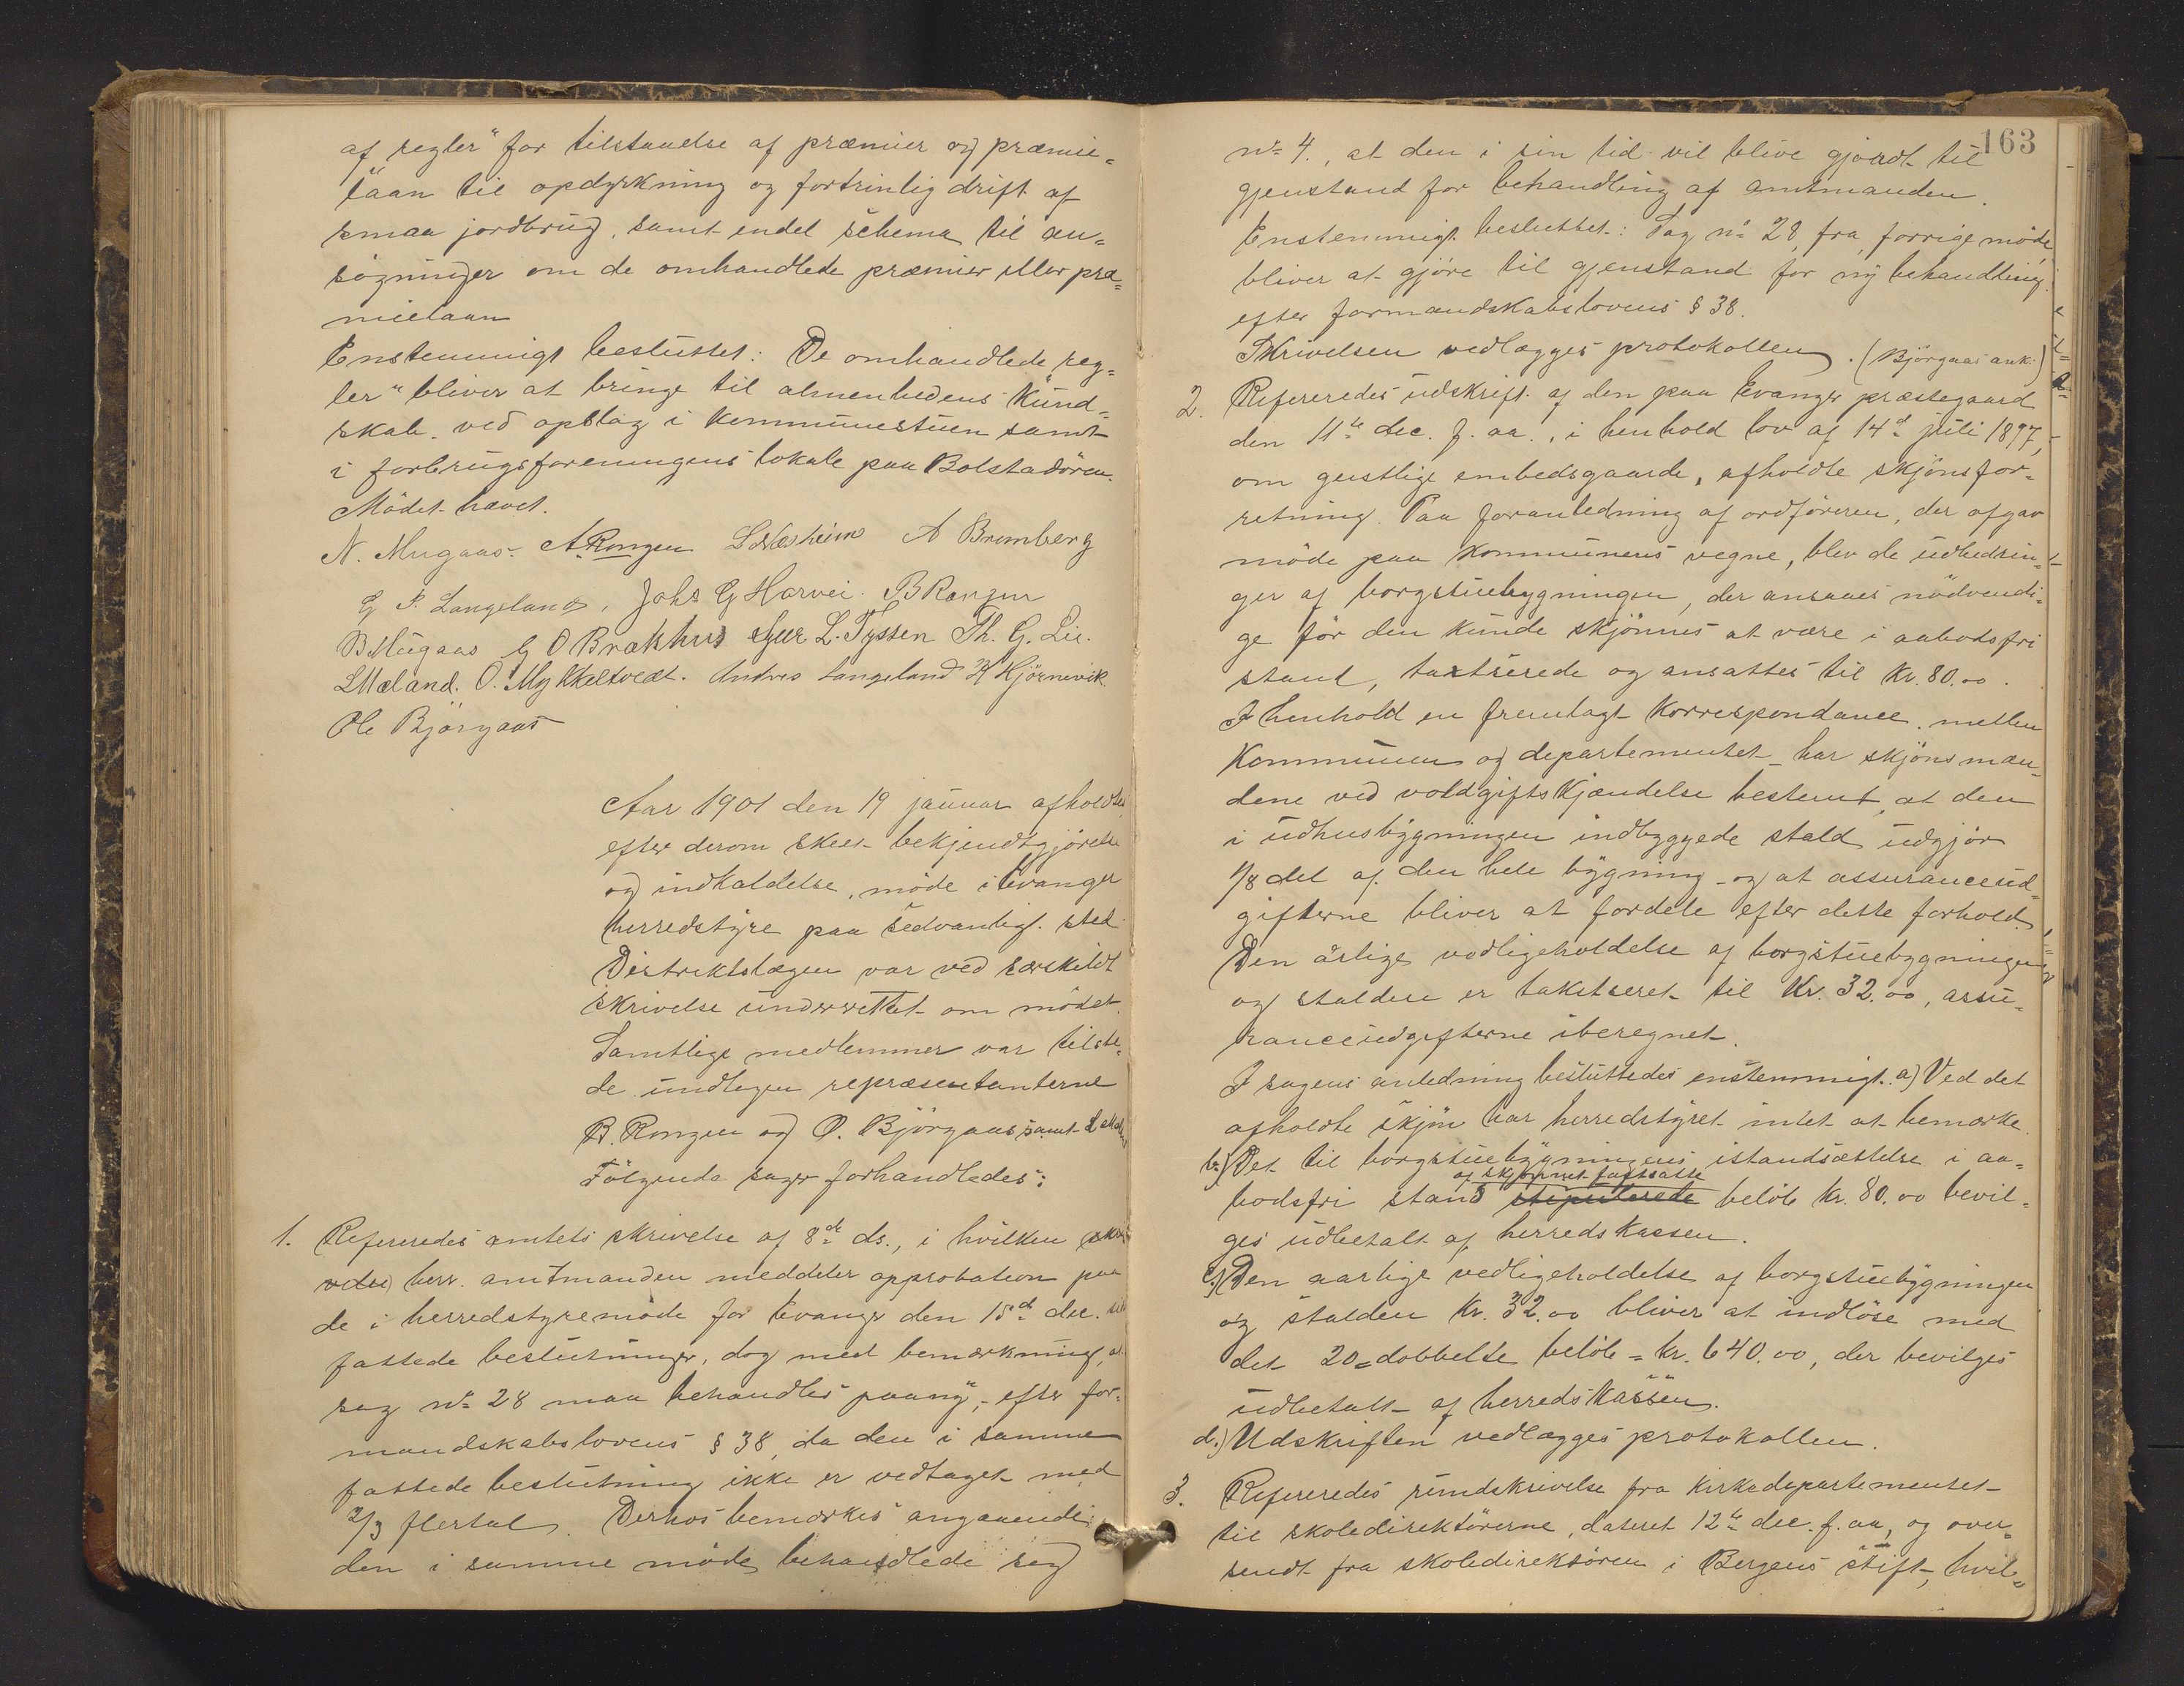 af regler" for tilstaaelse af præmier og præmie=
laan til opdyrkning og fortrinlig drift af
smaa jordbrug, samt endel schema til an=
søgninger om de omhandlede præmier eller præ=
mielaan
Enstemmigt besluttet: De omhandlede reg=
ler" bliver at bringe til almenhedens kund=
skab ved opslag i kommunestuen samt
i forbrugsforeningens lokale paa Bolstadøren.
Mødet hævet.
N. Mugaas. A Rongen L Næsheim A Bremberg
G P. Langeland, Johs G Horvei. B Rongen
B Mugaas G O Brækhus Gur. L. Tyssen Th. G. Lie.
L Mæland. O. Mykkeltvedt. Andres Langeland K Kjørnevik
Ole Bjørgaas
Aar 1901 den 19 januar afholdtes
efter derom skeet bekjendtgjørelse
og indkaldelse, møde i Evanger
herredstyre paa sedvanligt sted.
Distriktslægen var ved særskildt
skrivelse underrettet om mødet.
Samtlige medlemmer var tilste=
de undtagen repræsentanterne
B. Rongen og O. Bjørgaas samt L Mæland
Følgende sager forhandledes:
1. Refereredes amtets skrivelse af 8de ds., i hvilken
herr. amtmanden meddeler approbation paa
de i herredstyremøde for Evanger den 15de dec.
fattede beslutninger, dog med bemærkning, at
sag no 28 maa behandles paany, efter for=
mandskabslovens § 38, da den i samme
fattede beslutning ikke er vedtaget med
2/3 flertal. Derhos bemærkes angaaende
den i samme møde behandlede sag
163
no 4., at den i sin tid vil blive gjordt til
gjenstand for behandling af amtmanden.
Enstemmigt besluttet: Sag no 28, fra forrige møde
bliver at gjøre til gjenstand for ny behandling
efter formandskabslovens § 38.
Skrivelsen vedlægges protokollen. (Bjørgaas ank.)
2. Refereredes udskrift af den paa Evanger præstegaard
den 11te dec. f. aa., i henhold lov af 14de juli 1897,
om geistlige embedsgaarde, afholdte skjønsfor=
retning. Paa foranledning af ordføreren, der afgav
møde paa kommunens vegne, blev de udbedrin=
ger af borgstuebygningen, der ansaaes nødvendi=
ge før den kunde skjønnes at være i aabodsfri
stand, taxtserede og ansattes til kr. 80.00.
I henhold en fremlagt korrespondance mellem
kommunen og departementet har skjønsmæn=
dene ved voldgiftskjændelse bestemt, at den
i udhusbygningen indbyggede stald udgjør
1/8 del af den hele bygning og at assuranceud=
gifterne bliver at fordele efter dette forhold.
Den årlige vedligeholdelse af borgstuebygningen
og stalden er takstseret til kr. 32.00, assu=
ranceudgifterne iberegnet.
I sagens anledning besluttedes enstemmigt. a) Ved det
afholdte skjøn har herredstyret intet at bemærke.
b.) Det til borgstuebygningens istandsættelse i aa=
af skjønnet fastsatte
bodsfri stand stipulerede beløb kr. 80.00 bevil=
ges udbetalt af herredskassen.
c.) Den aarlige vedligeholdelse af borgstuebygningen
og stalden kr. 32.00 bliver at indløse med
det 20=dobbelte beløb = kr. 640.00, der bevilges
udbetalt af herredskassen.
d.) Udskriften vedlægges protokollen.
3. Refereredes rundskrivelse fra Kirkedepartementet
til skoledirektørerne, dateret 12te dec. f. aa, og over=
sendt fra skoledirektøren i Bergens stift, hvil=